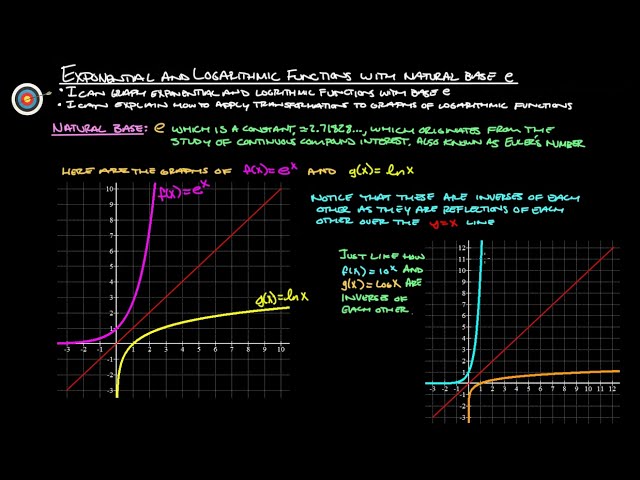 EXPONENTIAL AND LOGARITHMIC FUNCTIONS WITH NATURAL BASE e
• I CAN GRAPH EXPONENTIAL AND LOGRITHMIC FUNCTIONS WITH BASE e
• I CAN EXPLAIN HOW TO APPLY TRANSFORMATIONS TO GRAPHS OF LOGARITHMIC FUNCTIONS
NATURAL BASE: e WHICH IS A CONSTANT, ≈2.71828..., WHICH ORIGINATES FROM THE
STUDY OF CONTINUOUS COMPOUND INTEREST, ALSO KNOWN AS EULER'S NUMBER
HERE ARE THE GRAPHS OF f(x)=e^x AND g(x)=lnx
f(x)=e^x
g(x)=lnx
10
9
8
7
6
5
4
3
2
1
-1
-2
-3
-3 -2 -1 1 2 3 4 5 6 7 8 9 10
NOTICE THAT THESE ARE INVERSES OF EACH
OTHER AS THEY ARE REFLECTIONS OF EACH
OTHER OVER THE y=x LINE
JUST LIKE HOW
f(x)=10^x AND
g(x)=LOGX ARE
INVERSES OF
EACH OTHER.
12
11
10
9
8
7
6
5
4
3
2
1
-1
-2
-3
-3 -2 -1 1 2 3 4 5 6 7 8 9 10 11 12